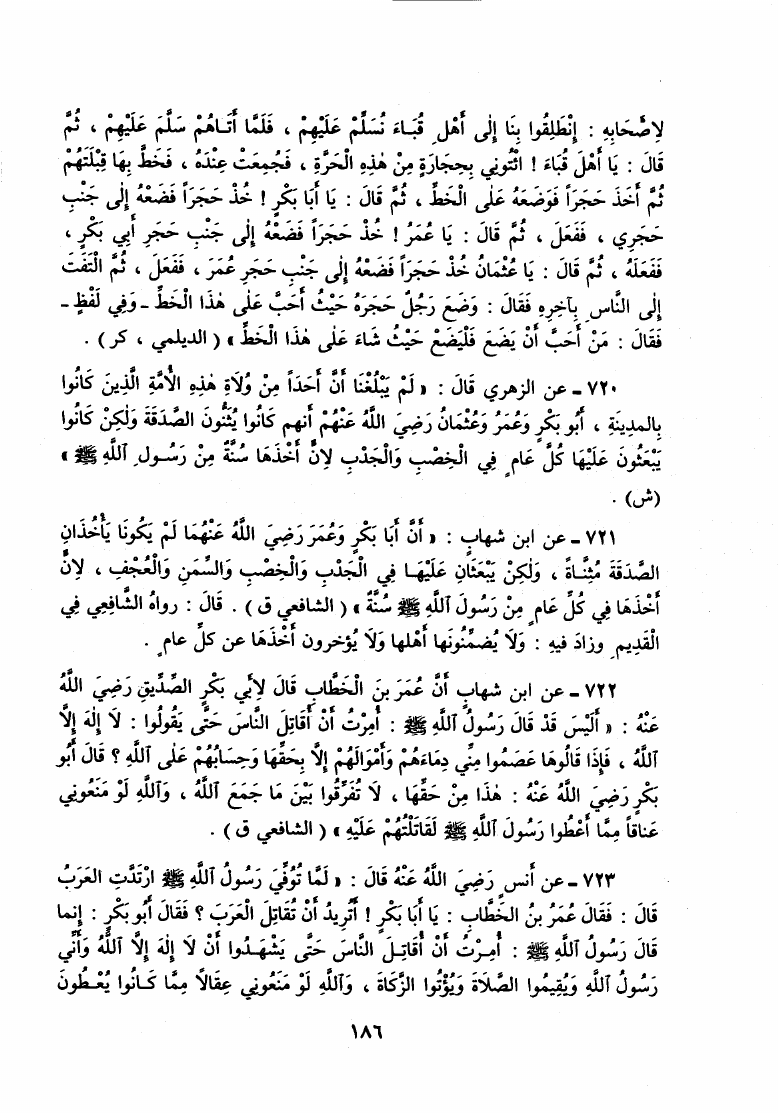 لِأَصْحَابِهِ : إِنْطَلِقُوا بِنَا إِلٰى أَهْلِ قُبَاءَ نُسَلِّمْ عَلَيْهِمْ ، فَلَمَّا أَتَاهُمْ سَلَّمَ عَلَيْهِمْ ، ثُمَّ
قَالَ : يَا أَهْلَ قُبَاءَ ! ائْتُونِي بِحِجَارَةٍ مِنْ هٰذِهِ الْحَرَّةِ ، فَجُمِعَتْ عِنْدَهُ ، فَخَطَّ بِهَا قِبْلَتَهُمْ
ثُمَّ أَخَذَ حَجَرَاً فَوَضَعَهُ عَلٰى الْخَطِّ ، ثُمَّ قَالَ : يَا أَبَا بَكْرٍ ! خُذْ حَجَرَاً فَضَعْهُ إِلٰى جَنْبِ
حَجَرِي ، فَفَعَلَ ، ثُمَّ قَالَ : يَا عُمَرُ ! خُذْ حَجَرَاً فَضَعْهُ إِلٰى جَنْبِ حَجَرِ أَبِي بَكْرٍ ،
فَفَعَلَهُ ، ثُمَّ قَالَ : يَا عُثْمَانُ خُذْ حَجَرَاً فَضَعْهُ إِلٰى جَنْبِ حَجَرِ عُمَرَ ، فَفَعَلَ ، ثُمَّ الْتَفَتَ
إِلٰى النَّاسِ بِآخِرِهِ فَقَالَ : وَضَعَ رَجُلٌ حَجَرَهُ حَيْثُ أَحَبَّ عَلٰى هٰذَا الْخَطِّ ـ وَفِي لَفْظٍ ـ
فَقَالَ : مَنْ أَحَبَّ أَنْ يَضَعَ فَلْيَضَعْ حَيْثُ شَاءَ عَلٰى هٰذَا الْخَطِّ » ( الديلمي ، كر ) .
٧٢٠ ـ عن الزهري قَالَ : « لَمْ يَبْلُغْنَا أَنَّ أَحَدَاً مِنْ وُلَاةِ هٰذِهِ الْأُمَّةِ الَّذِينَ كَانُوا
بِالمدِينَةِ ، أَبُو بَكْرٍ وَعُمَرُ وَعُثْمَانُ رَضِيَ اللَّهُ عَنْهُمْ أَنهم كَانُوا يُثَنُّونَ الصَّدَقَةَ وَلٰكِنْ كَانُوا
يَبْعَثُونَ عَلَيْهَا كُلَّ عَامٍ فِي الْخِصْبِ وَالْجَدْبِ لِأَنَّ أَخْذَهَا سُنَّةٌ مِنْ رَسُولِ اللَّهِ ﷺ »
(ش) .
٧٢١ ـ عن ابن شهابٍ : « أَنَّ أَبَا بَكْرٍ وَعُمَرَ رَضِيَ اللَّهُ عَنْهُمَا لَمْ يَكُونَا يَأْخُذَانِ
الصَّدَقَةَ مُثَنَّـاةً ، وَلٰكِنْ يَبْعَثَانِ عَلَيْهَـا فِي الْجَدْبِ وَالْخِصْبِ وَالسِّمَنِ وَالْعُجْفِ ، لِأَنَّ
أَخْذَهَا فِي كُلِّ عَامٍ مِنْ رَسُولَ اللَّهِ ﷺ سُنَّةٌ » ( الشافعي ق ) . قَالَ : رواهُ الشَّافِعِي فِي
الْقَدِيمِ وزادَ فِيهِ : وَلَا يُضمِّنُونها أَهْلها وَلَا يُؤخرون أَخْذَهَا عن كلِّ عامٍ .
٧٢٢ ـ عن ابن شهابٍ أَنَّ عُمَرَ بنَ الْخَطَّابِ قَالَ لِأَبِي بَكْرٍ الصِّدِّيقِ رَضِيَ اللَّهُ
عَنْهُ : « أَلَيْسَ قَدْ قَالَ رَسُولُ اللَّهِ ﷺ : أُمِرْتُ أَنْ أُقَاتِلَ النَّاسَ حَتَّى يَقُولُوا : لَا إِلٰهَ إِلَّا
اللَّهُ ، فَإِذَا قَالُوهَا عَصَمُوا مِنِّي دِمَاءَهُمْ وَأَمْوَالَهُمْ إِلَّا بِحَقِّهَا وَحِسَابُهُمْ عَلٰى اللَّهِ ؟ قَالَ أَبُو
بَكْرٍ رَضِيَ اللَّهُ عَنْهُ : هٰذَا مِنْ حَقِّهَا ، لَا تُفَرِّقُوا بَيْنَ مَا جَمَعَ اللَّهُ ، وَاللَّهِ لَوْ مَنَعُونِي
عَنَاقاً مِمَّا أَعْطُوا رَسُولَ اللَّهِ ﷺ لَقَاتَلْتُهُمْ عَلَيْهِ » ( الشافعي ق ) .
٧٢٣ ـ عن أَنسٍ رَضِيَ اللَّهُ عَنْهُ قَالَ : « لَمَّا تُوُفِّيَ رَسُولُ اللَّهِ ﷺ ارْتَدَّتِ العَرَبُ
قَالَ : فَقَالَ عُمَرُ بنُ الخَطَّابِ : يَا أَبَا بَكْرٍ ! أَتُرِيدُ أَنْ تُقَاتِلَ العَرَبَ ؟ فَقَالَ أَبُو بَكْرٍ : إِنما
قَالَ رَسُولُ اللَّهِ ﷺ : أُمِـرْتُ أَنْ أُقَاتِـلَ النَّاسَ حَتَّى يَشْهَـدُوا أَنْ لَا إِلٰهَ إِلَّا اللَّهُ وَأَنِّي
رَسُولُ اللَّهِ وَيُقِيمُوا الصَّلَاةَ وَيُؤْتُوا الزَّكَاةَ ، وَاللَّهِ لَوْ مَنَعُونِي عِقَالًا مِمَّا كَـانُوا يُعْـطُونَ
١٨٦